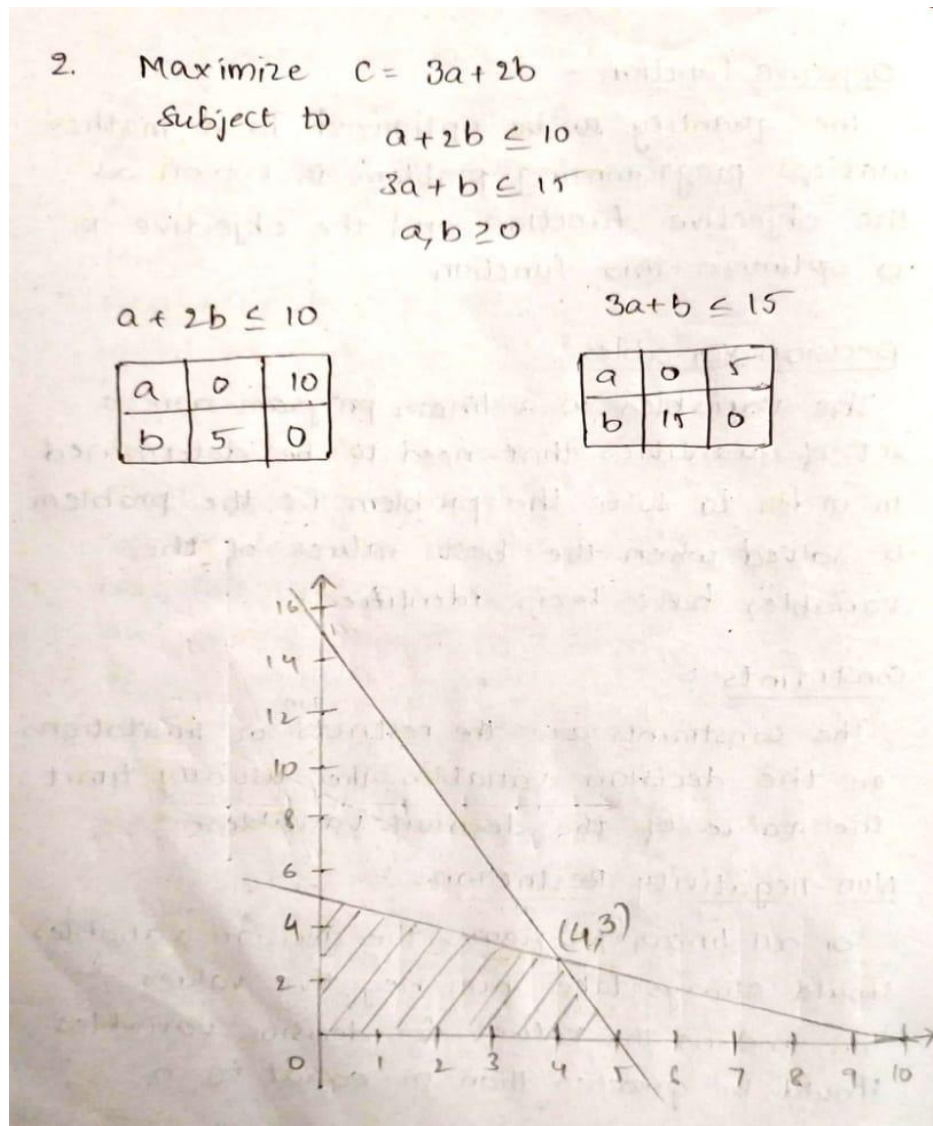 2. Maximize C = 3a + 2b
Subject to
a + 2b ≤ 10
3a + b ≤ 15
a, b ≥ 0
a + 2b ≤ 10
3a + b ≤ 15
a 0 10
b 5 0
a 0 5
b 15 0
16
14
12
10
8
6
4
2
(4,3)
0 1 2 3 4 5 6 7 8 9 10